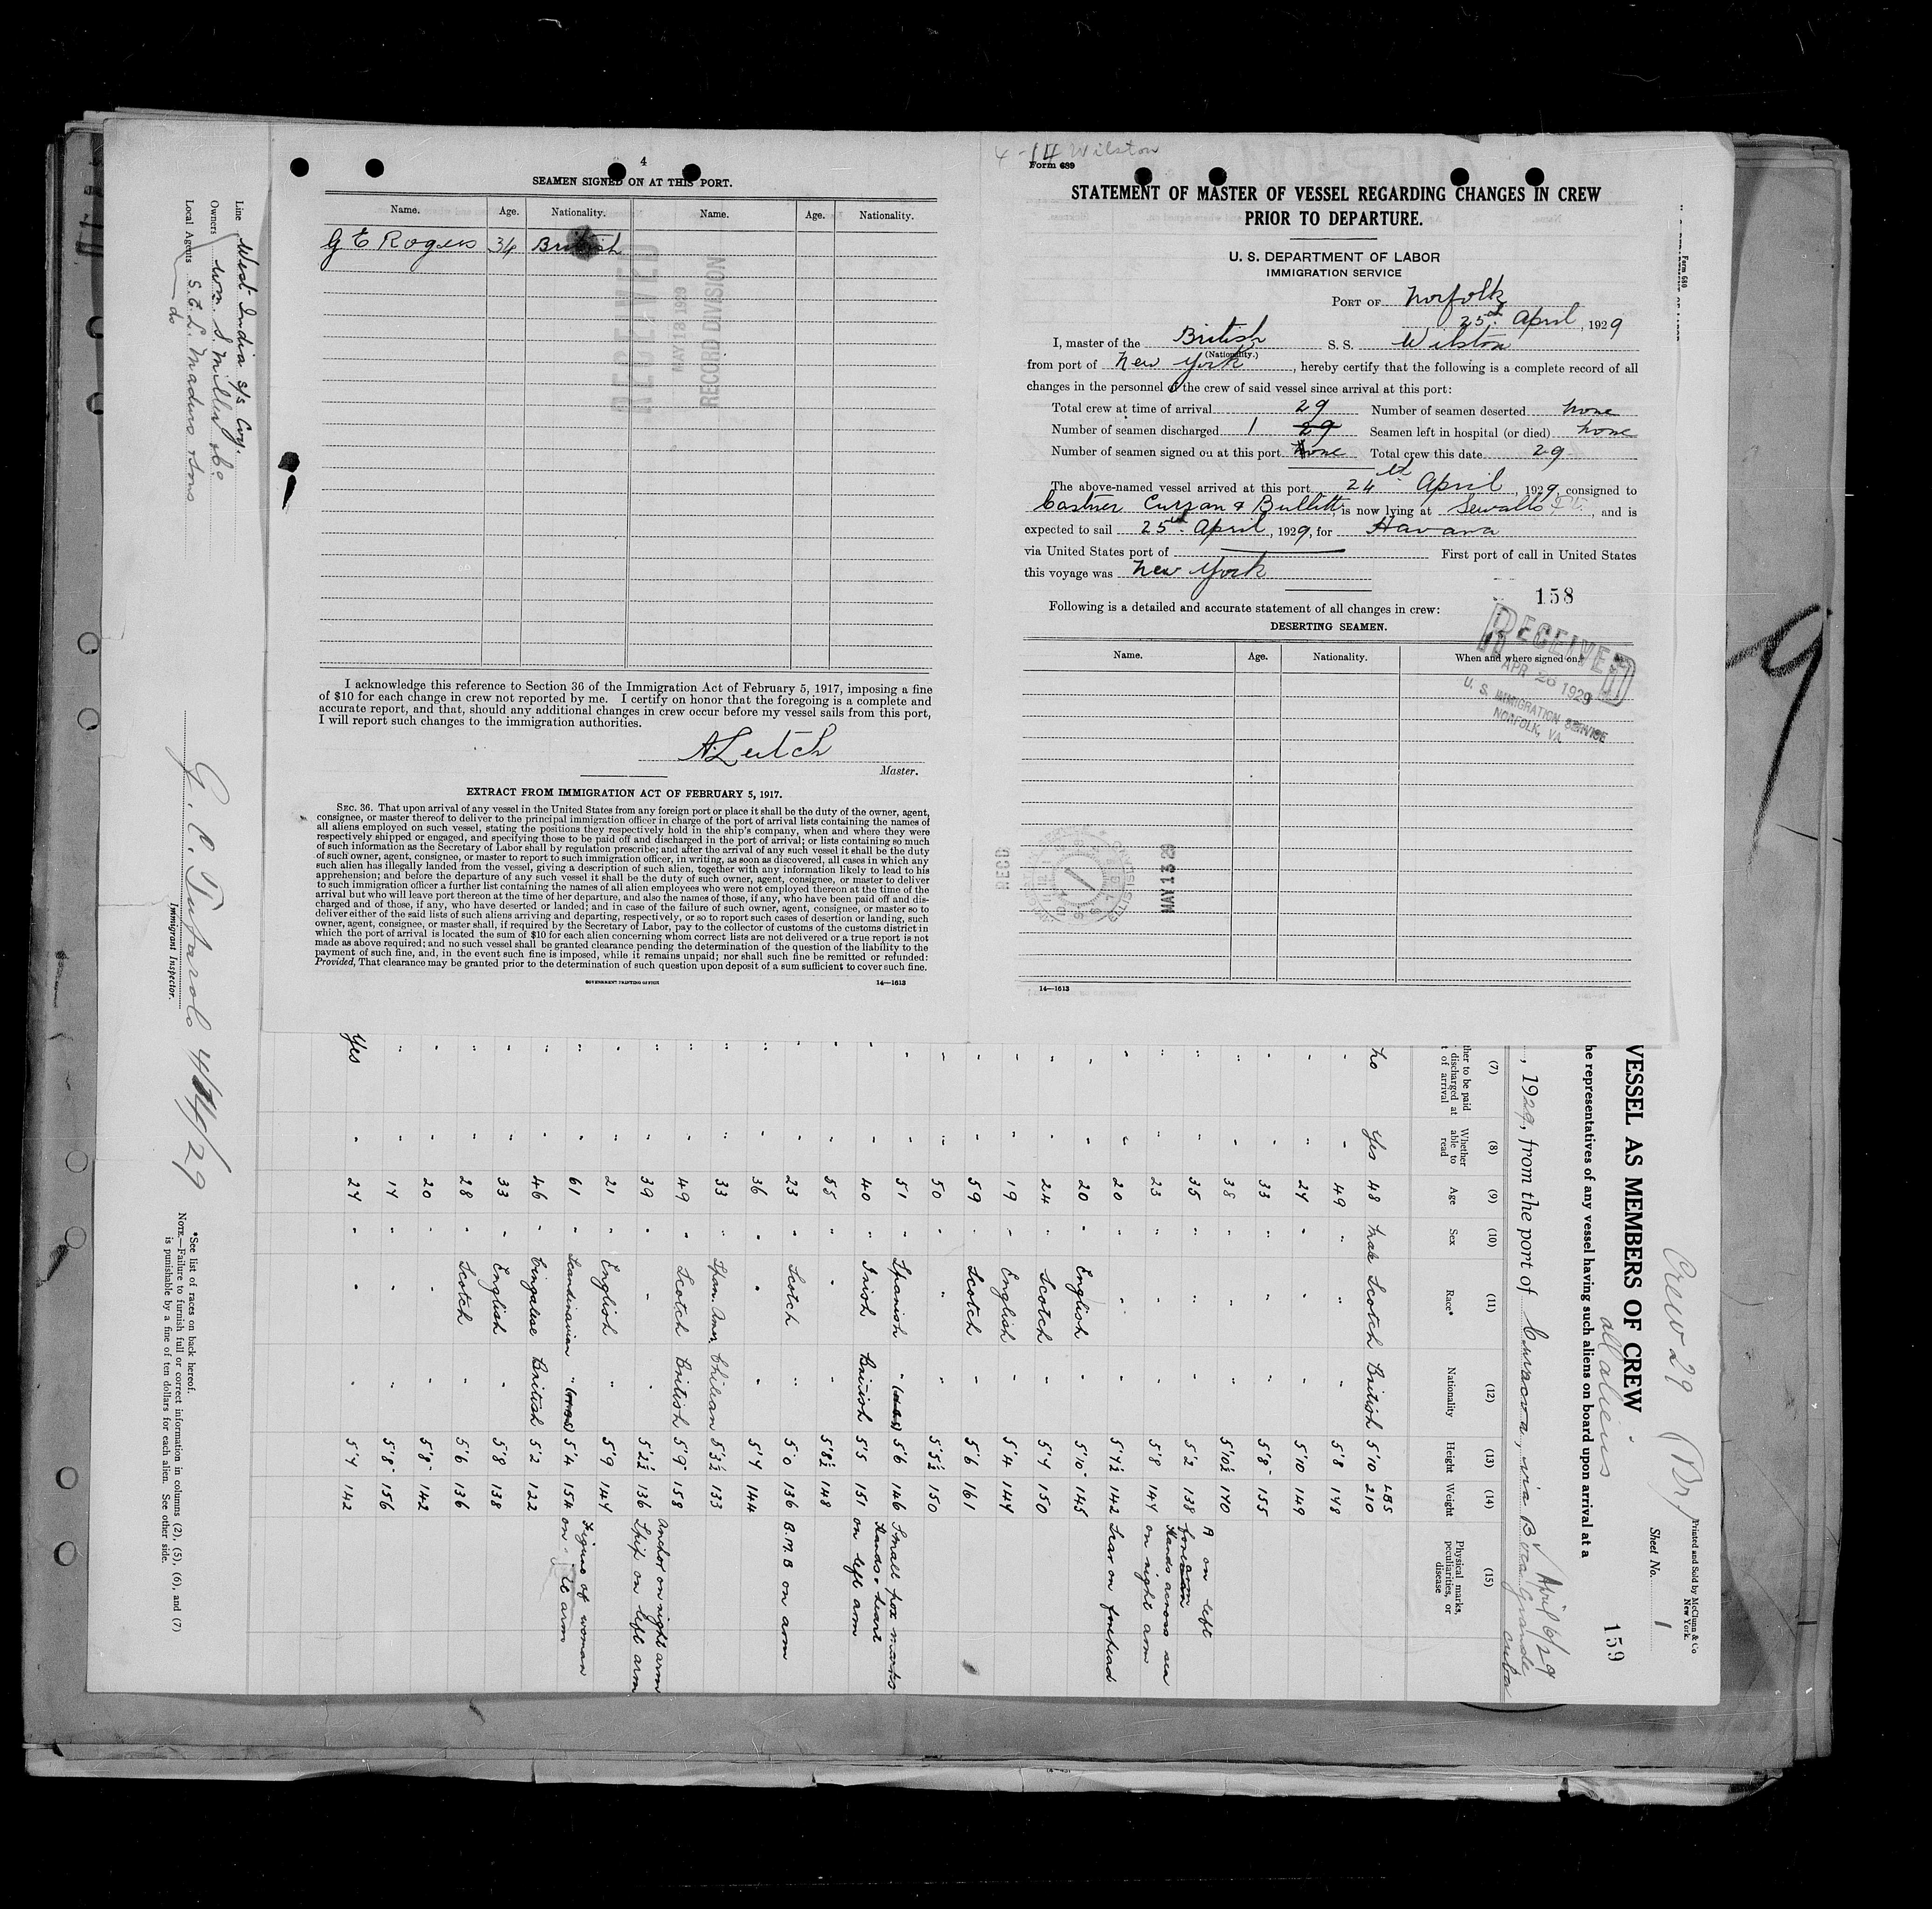 4-14 Wilston
4
SEAMEN SIGNED ON AT THIS PORT.
Name. Age. Nationality. Name. Age. Nationality.
G E Rogers 34 British
RECEIVED
MAY 13 1929
RECORD DIVISION
I acknowledge this reference to Section 36 of the Immigration Act of February 5, 1917, imposing a fine
of $10 for each change in crew not reported by me. I certify on honor that the foregoing is a complete and
accurate report, and that, should any additional changes in crew occur before my vessel sails from this port,
I will report such changes to the immigration authorities.
A Leitch
Master.
EXTRACT FROM IMMIGRATION ACT OF FEBRUARY 5, 1917.
SEC. 36. That upon arrival of any vessel in the United States from any foreign port or place it shall be the duty of the owner, agent,
consignee, or master thereof to deliver to the principal immigration officer in charge of the port of arrival lists containing the names of
all aliens employed on such vessel, stating the positions they respectively hold in the ship's company, when and where they were
respectively shipped or engaged, and specifying those to be paid off and discharged in the port of arrival; or lists containing so much
of such information as the Secretary of Labor shall by regulation prescribe; and after the arrival of any such vessel it shall be the duty
of such owner, agent, consignee, or master to report to such immigration officer, in writing, as soon as discovered, all cases in which any
such alien has illegally landed from the vessel, giving a description of such alien, together with any information likely to lead to his
apprehension; and before the departure of any such vessel it shall be the duty of such owner, agent, consignee, or master to deliver
to such immigration officer a further list containing the names of all alien employees who were not employed thereon at the time of the
arrival but who will leave port thereon at the time of her departure, and also the names of those, if any, who have been paid off and dis-
charged and of those, if any, who have deserted or landed; and in case of the failure of such owner, agent, consignee, or master so to
deliver either of the said lists of such aliens arriving and departing, respectively, or so to report such cases of desertion or landing, such
owner, agent, consignee, or master shall, if required by the Secretary of Labor, pay to the collector of customs of the customs district in
which the port of arrival is located the sum of $10 for each alien concerning whom correct lists are not delivered or a true report is not
made as above required; and no such vessel shall be granted clearance pending the determination of the question of the liability to the
payment of such fine, and, in the event such fine is imposed, while it remains unpaid; nor shall such fine be remitted or refunded:
Provided, That clearance may be granted prior to the determination of such question upon deposit of a sum sufficient to cover such fine.
GOVERNMENT PRINTING OFFICE 14—1613
Form 689
STATEMENT OF MASTER OF VESSEL REGARDING CHANGES IN CREW
PRIOR TO DEPARTURE.
U. S. DEPARTMENT OF LABOR
IMMIGRATION SERVICE
PORT OF Norfolk
25th April, 1929
I, master of the British S. S. Wilston
(Nationality.)
from port of New York, hereby certify that the following is a complete record of all
changes in the personnel of the crew of said vessel since arrival at this port:
Total crew at time of arrival 29 Number of seamen deserted none
Number of seamen discharged 1 29 Seamen left in hospital (or died) none
Number of seamen signed on at this port 1 none Total crew this date 29
The above-named vessel arrived at this port 24th April, 1929, consigned to
Castner Curran & Bullitt, is now lying at Sewalls Pt., and is
expected to sail 25th April, 1929, for Havana
via United States port of First port of call in United States
this voyage was New York
158
Following is a detailed and accurate statement of all changes in crew:
DESERTING SEAMEN.
Name. Age. Nationality. When and where signed on.
RECEIVED
APR 26 1929
U. S. IMMIGRATION SERVICE
NORFOLK, VA
RECD
MAY 13 29
14—1613
Form 689
9
VESSEL AS MEMBERS OF CREW
Crew 29 (Br)
all aliens
Printed and Sold by McClunn & Co
New York.
Sheet No. 1
159
he representatives of any vessel having such aliens on board upon arrival at a
April 6/29
, 1929, from the port of Curacoa, via Boca Grande
Cuba
(7) (8) (9) (10) (11) (12) (13) (14) (15)
ther to be paid discharged at t of arrival
Whether able to read
Age Sex Race* Nationality Height Weight
Physical marks, peculiarities, or disease
LBS
no Yes 48 male Scotch British 5'10 210
" " 49 " " " 5'8 178
" " 27 " " " 5'10 149
" " 33 " " " 5'8 155
" " 38 " " " 5'10½ 170
" " 35 " " " 5'2 138 A on left forearm
" " 23 " " " 5'8 147 Hands across sea on right arm
" " 20 " " " 5'7½ 142 Scar on forehead
" " 20 " English " 5'10 145
" " 24 " Scotch " 5'7 150
" " 19 " English " 5'4 147
" " 59 " Scotch " 5'6 161
" " 50 " " " 5'5½ 150
" " 51 " Spanish " 5'6 146 Small pox marks
" " 40 " Irish British 5'5 151 Hands & heart on left arm
" " 55 " " " 5'8½ 148
" " 23 " Scotch " 5'0 136 B.M.B on arm
" " 36 " " " 5'7 144
" " 33 " Span. Amn. Chilean 5'3½ 133
" " 49 " Scotch British 5'9 158
" " 39 " " " 5'2½ 136 Anchor on right arm Ship on left arm
" " 21 " English " 5'9 147
" " 61 " Scandinavian " 5'4 154 Figure of woman on arm
" " 46 " Cingalese British 5'2 122
" " 33 " English " 5'8 138
" " 28 " Scotch " 5'6 136
" " 20 " " " 5'8 142
" " 17 " " " 5'8 156
Yes " 27 " " " 5'7 142
Line West India S/S Coy.
Owners Wm. S. Miller & Co
Local Agents S.E.L. Maduro & Sons
do
Immigrant Inspector.
4/14/29
*See list of races on back hereof.
NOTE.—Failure to furnish full or correct information in columns (2), (5), (6), and (7)
is punishable by a fine of ten dollars for each alien. See other side.